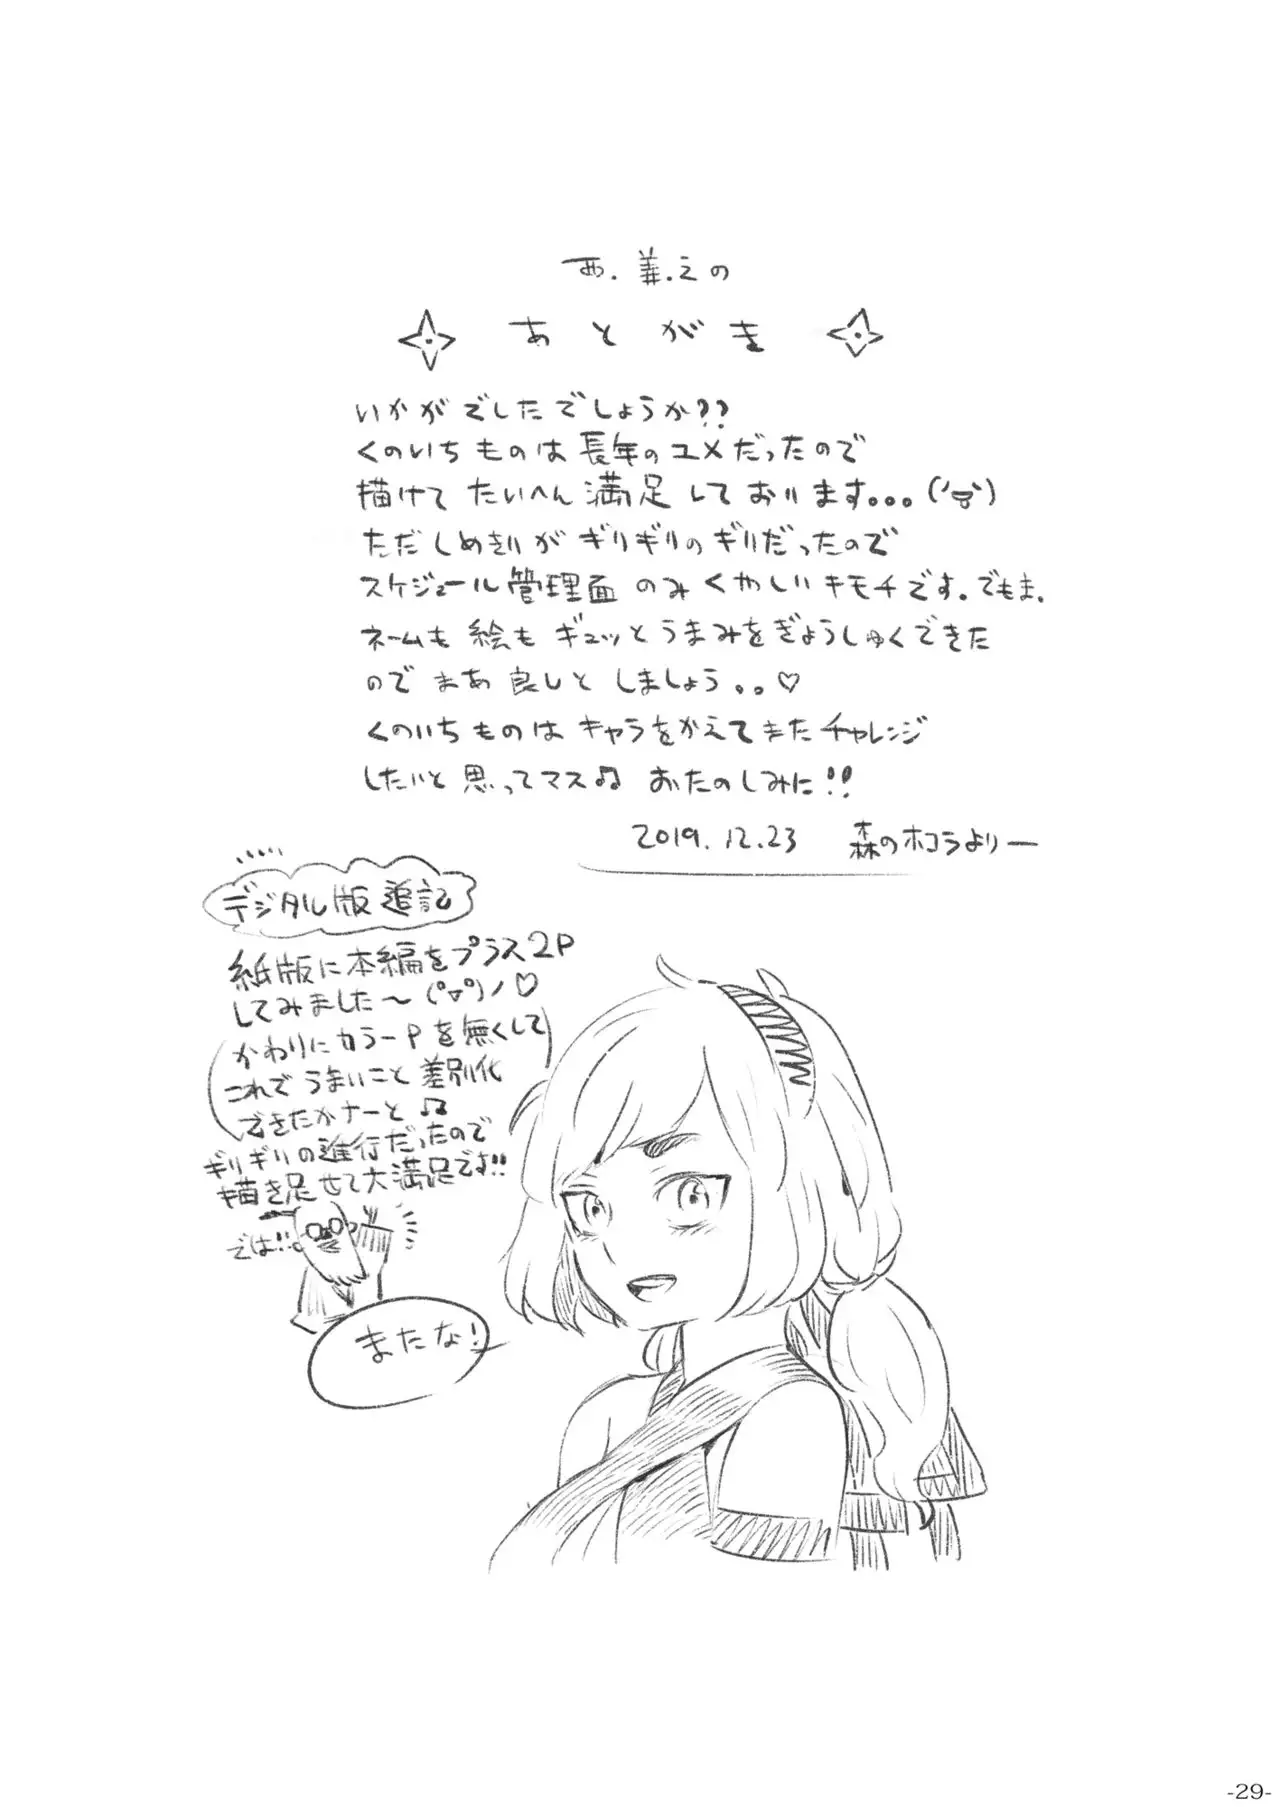 西.義.之の
あとがき
いかがでしたでしょうか??
くのいちものは長年のユメだったので
描けてたいへん満足しております。。。
ただしめきりがギリギリのギリだったので
スケジュール管理面のみくやしいキモチです。でもま、
ネームも絵もギュッとうまみをぎょうしゅくできた
のでまあ良しとしましょう。。♡
くのいちものはキャラをかえてまたチャレンジ
したいと思ってマス♫ おたのしみに!!
2019.12.23 森のホコラよりー
デジタル版追記
紙版に本編をプラス2P
してみました〜(°▽°)ノ♡
かわりにカラーPを無くして
これでうまいこと差別化
できたかナーと♫
ギリギリの進行だったので
描き足せて大満足です!!
では!!
またな!
-29-